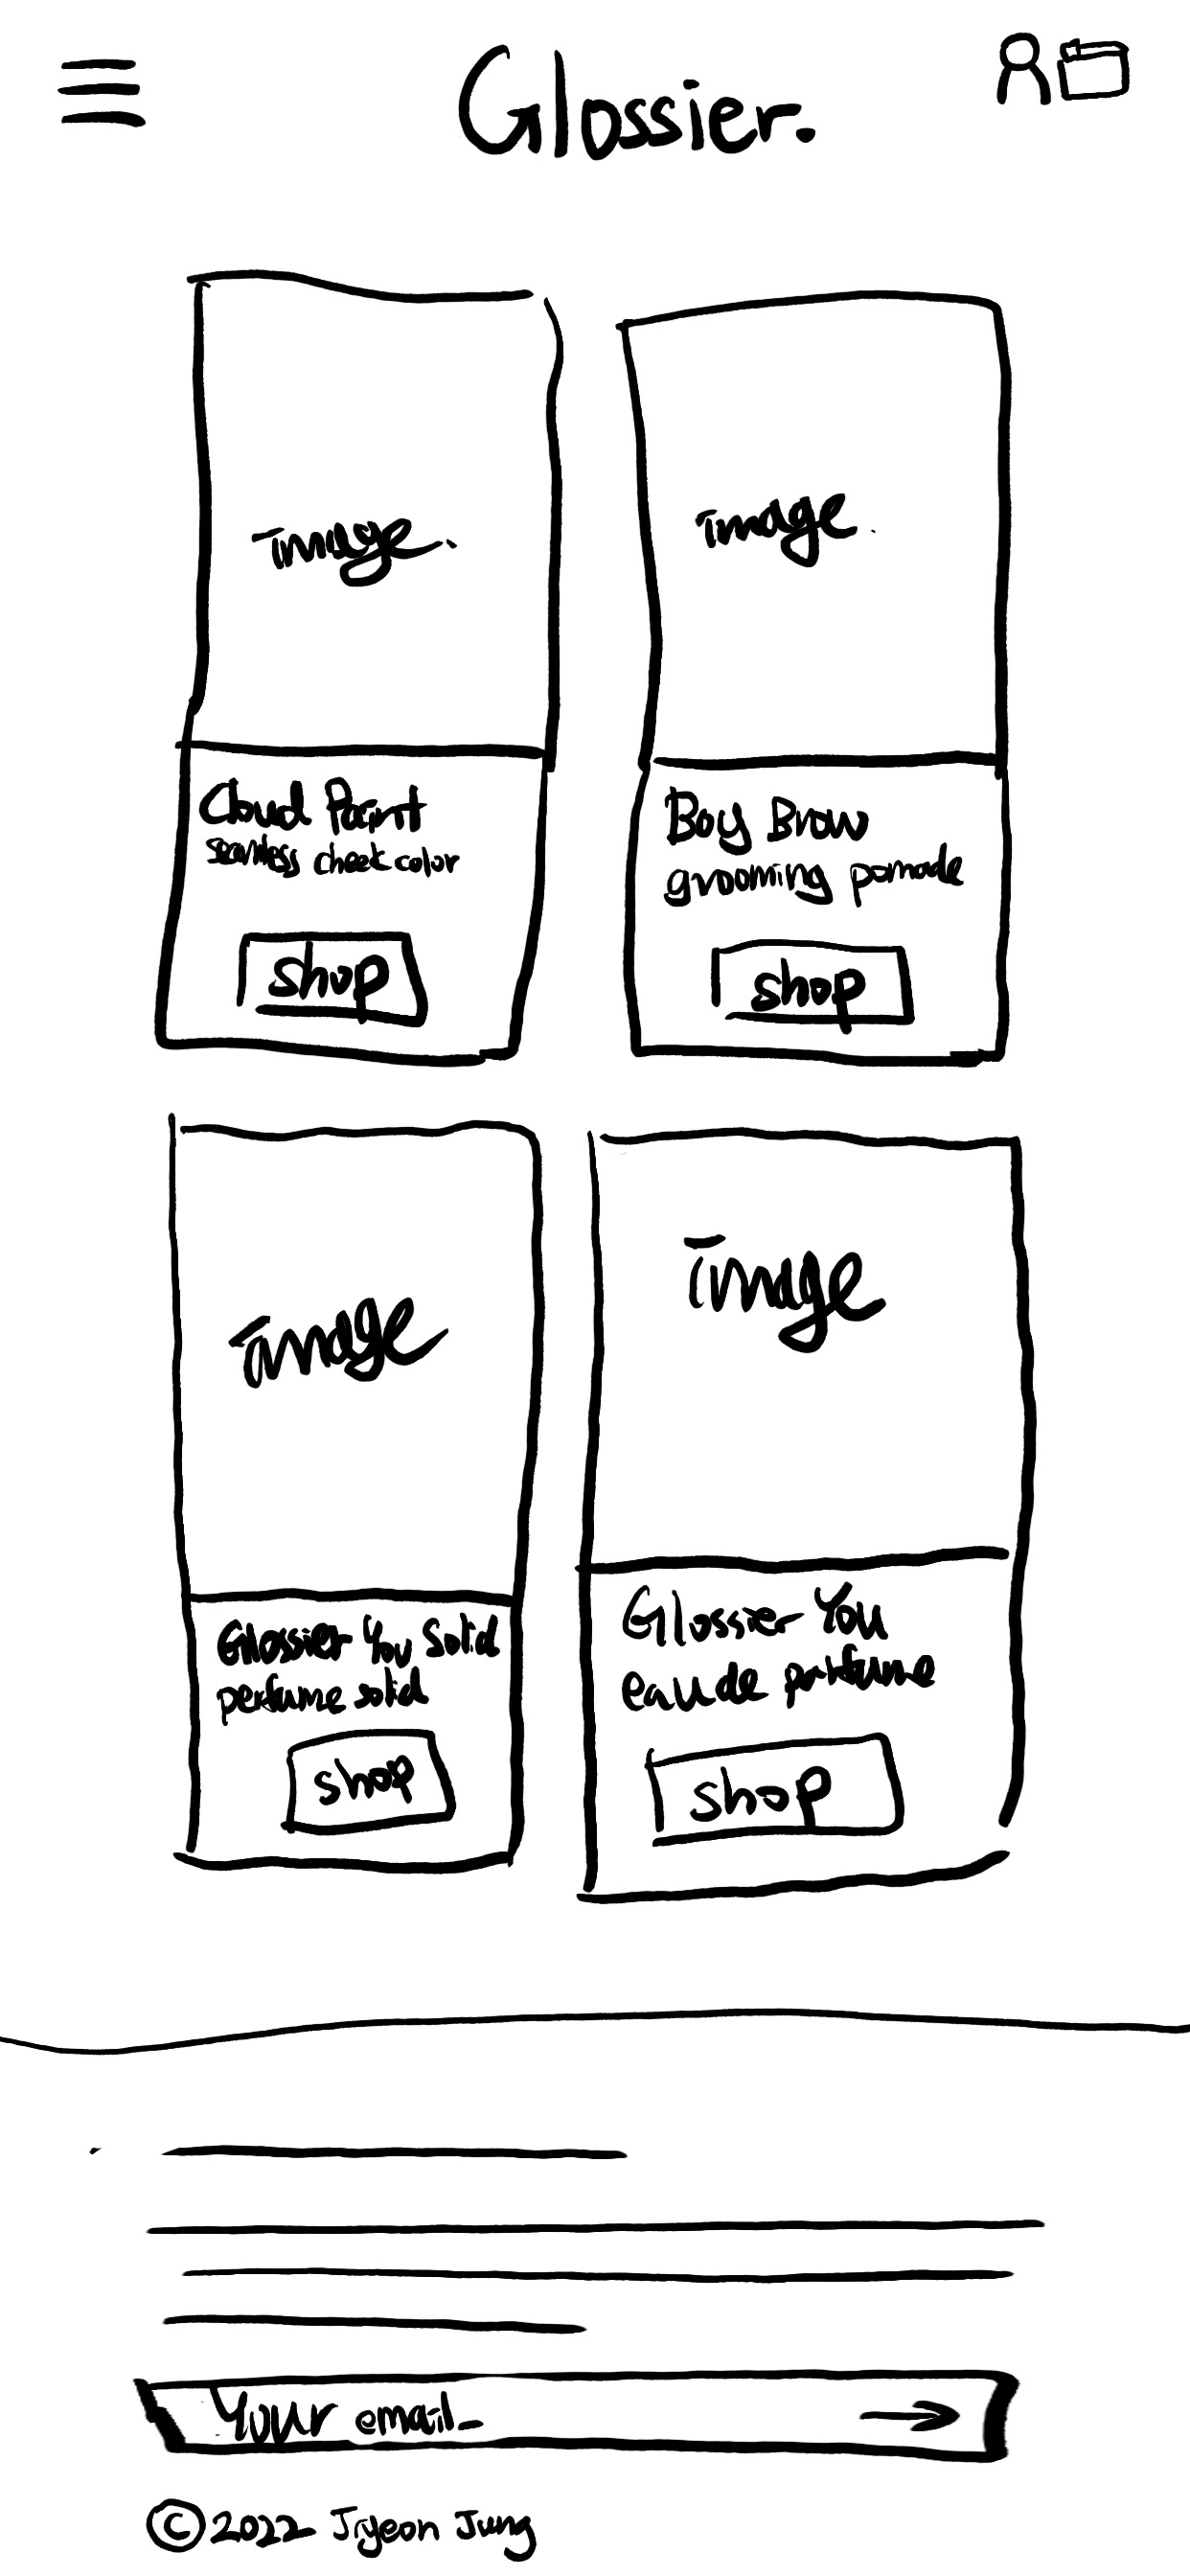 Glossier.
image.
image.
Cloud Paint
seamless cheek color
shop
Boy Brow
grooming pomade
shop
image
image
Glossier You Solid
perfume solid
shop
Glossier You
eau de parfume
shop
Your email
© 2022 Jiyeon Jung